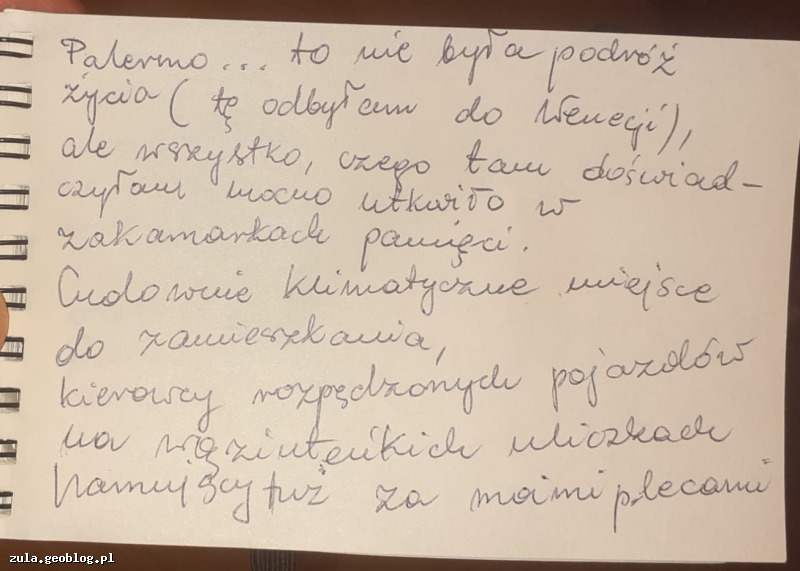 Palermo... to nie była podróż
życia (tę odbyłam do Wenecji),
ale wszystko, czego tam doświad-
czyłam mocno utkwiło w
zakamarkach pamięci.
Cudownie klimatyczne miejsce
do zamieszkania,
kierowcy rozpędzonych pojazdów
na węziuteńkich uliczkach
hamujący tuż za moimi plecami
zula.geoblog.pl